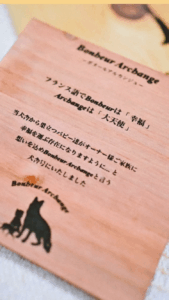 Bonheur Archange
フランス語でBonheurは「幸福」
Archangeは「大天使」
当犬舎から巣立つパピー達がオーナー様ご家族に
幸福を運ぶ存在になりますように…と
想いを込めBonheur Archangeと言う
犬舎号にいたしました
Bonheur Archange